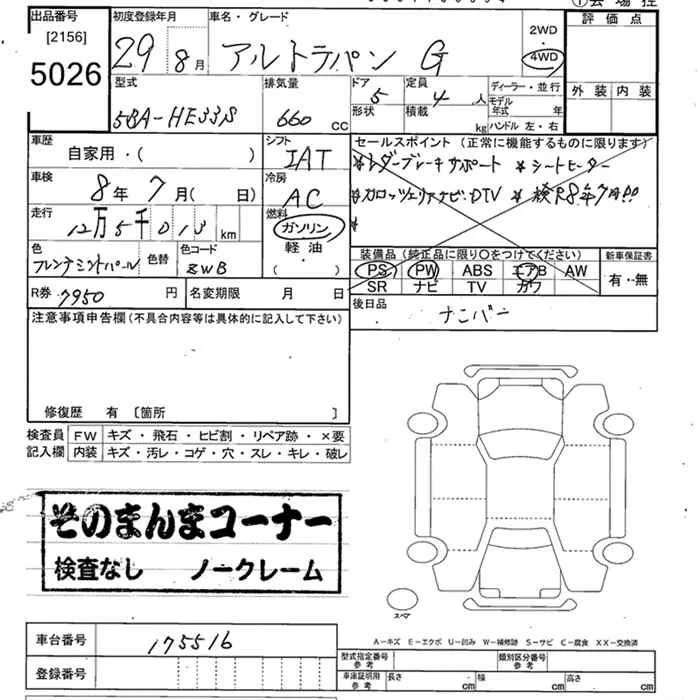 ①会場控
出品番号 初度登録年月 車名・グレード 評価点
[2156]
5026
29 8月 アルトラパン G
2WD
4WD
型式 排気量 ドア 定員 ディーラー・並行 外装 内装
5BA-HE33S 660 CC
5 4 人
モデル年式 年
形状 積載 kg ハンドル 左・右
車歴 シフト セールスポイント (正常に機能するものに限ります)
自家用・( ) IAT
*レーダーブレーキサポート *シートヒーター
車検 冷房
8年 7月( 日) AC
*カロッツェリアナビ、DTV *検R8年7月!!
*
走行 燃料
12万5千013 km
ガソリン
軽油
( )
色 色替 色コード
フレンチミントパール ZWB
装備品 (純正品に限り○をつけてください) 新車保証書
PS PW ABS エアB AW
SR ナビ TV カワ
有・無
R券 7950 円 名変期限 月 日
後日品
ナンバー
注意事項申告欄(不具合内容等は具体的に記入して下さい)
修復歴 有 〔箇所 〕
検査員 FW キズ・飛石・ヒビ割・リペア跡・×要
記入欄 内装 キズ・汚レ・コゲ・穴・スレ・キレ・破レ
そのまんまコーナー
検査なし ノークレーム
スペア
A−キズ E−エクボ U−凹み W−補修跡 S−サビ C−腐食 XX−交換済
車台番号 175516
登録番号
型式指定番号 参考 類別区分番号 参考
車庫証明用 参考 長さ cm 幅 cm 高さ cm